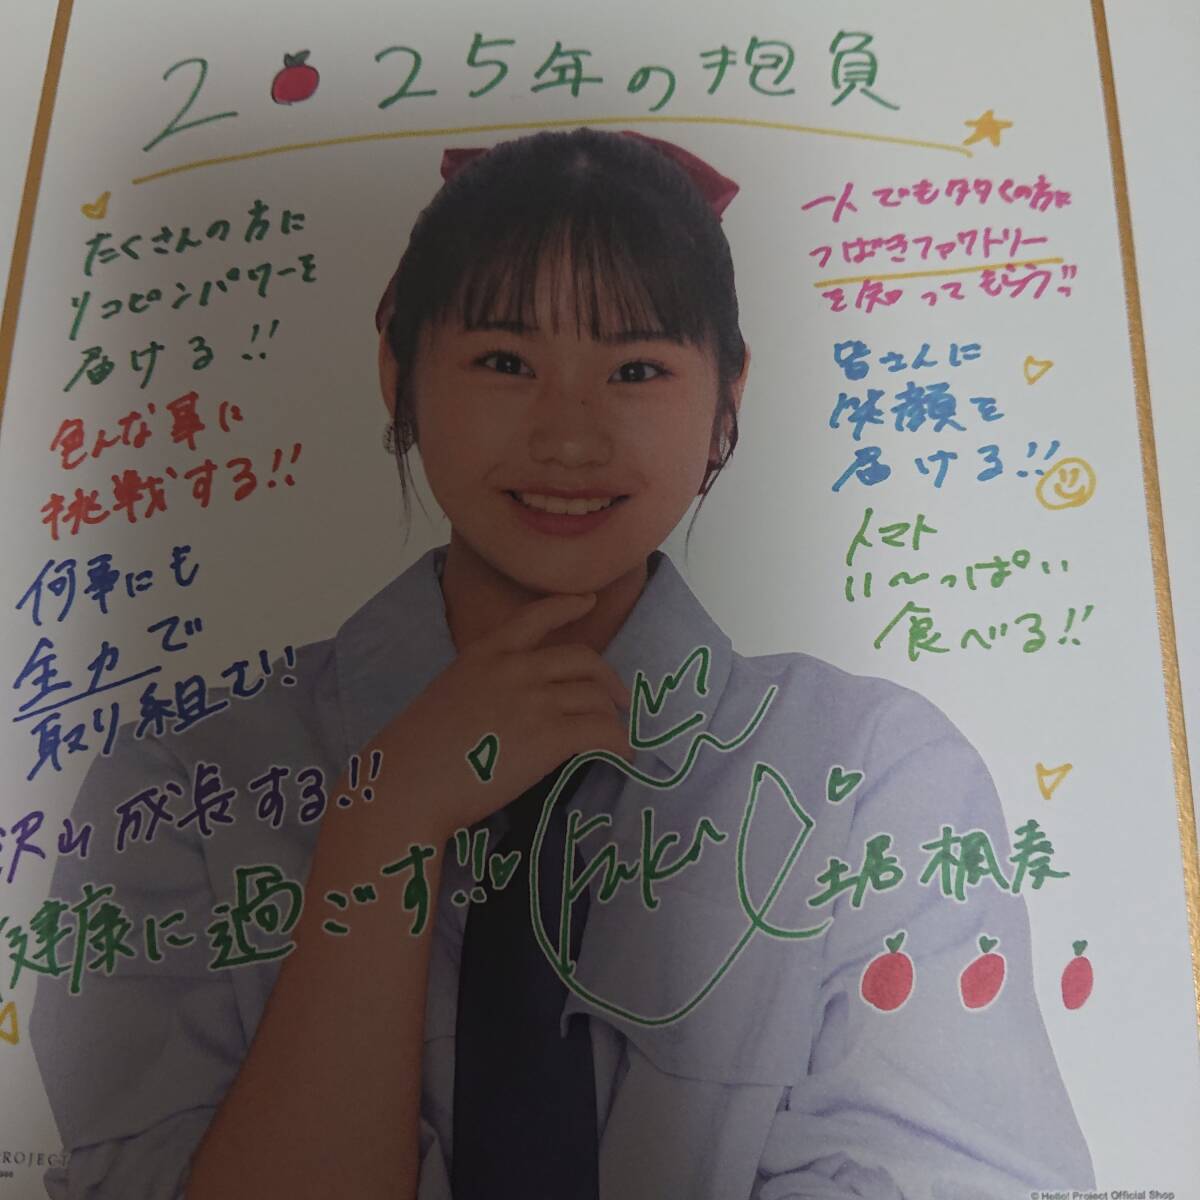 2025年の抱負
たくさんの方に
リコピンパワーを
届ける!!
色んな事に
挑戦する!!
何事にも
全力で
取り組む!!
沢山成長する!!
健康に過ごす!!
一人でも多くの方に
つばきファクトリー
を知ってもらう!!
皆さんに
笑顔を
届ける!!
トマト
い〜っぱい
食べる!!
土居楓奏
ROJECT
© Hello! Project Official Shop